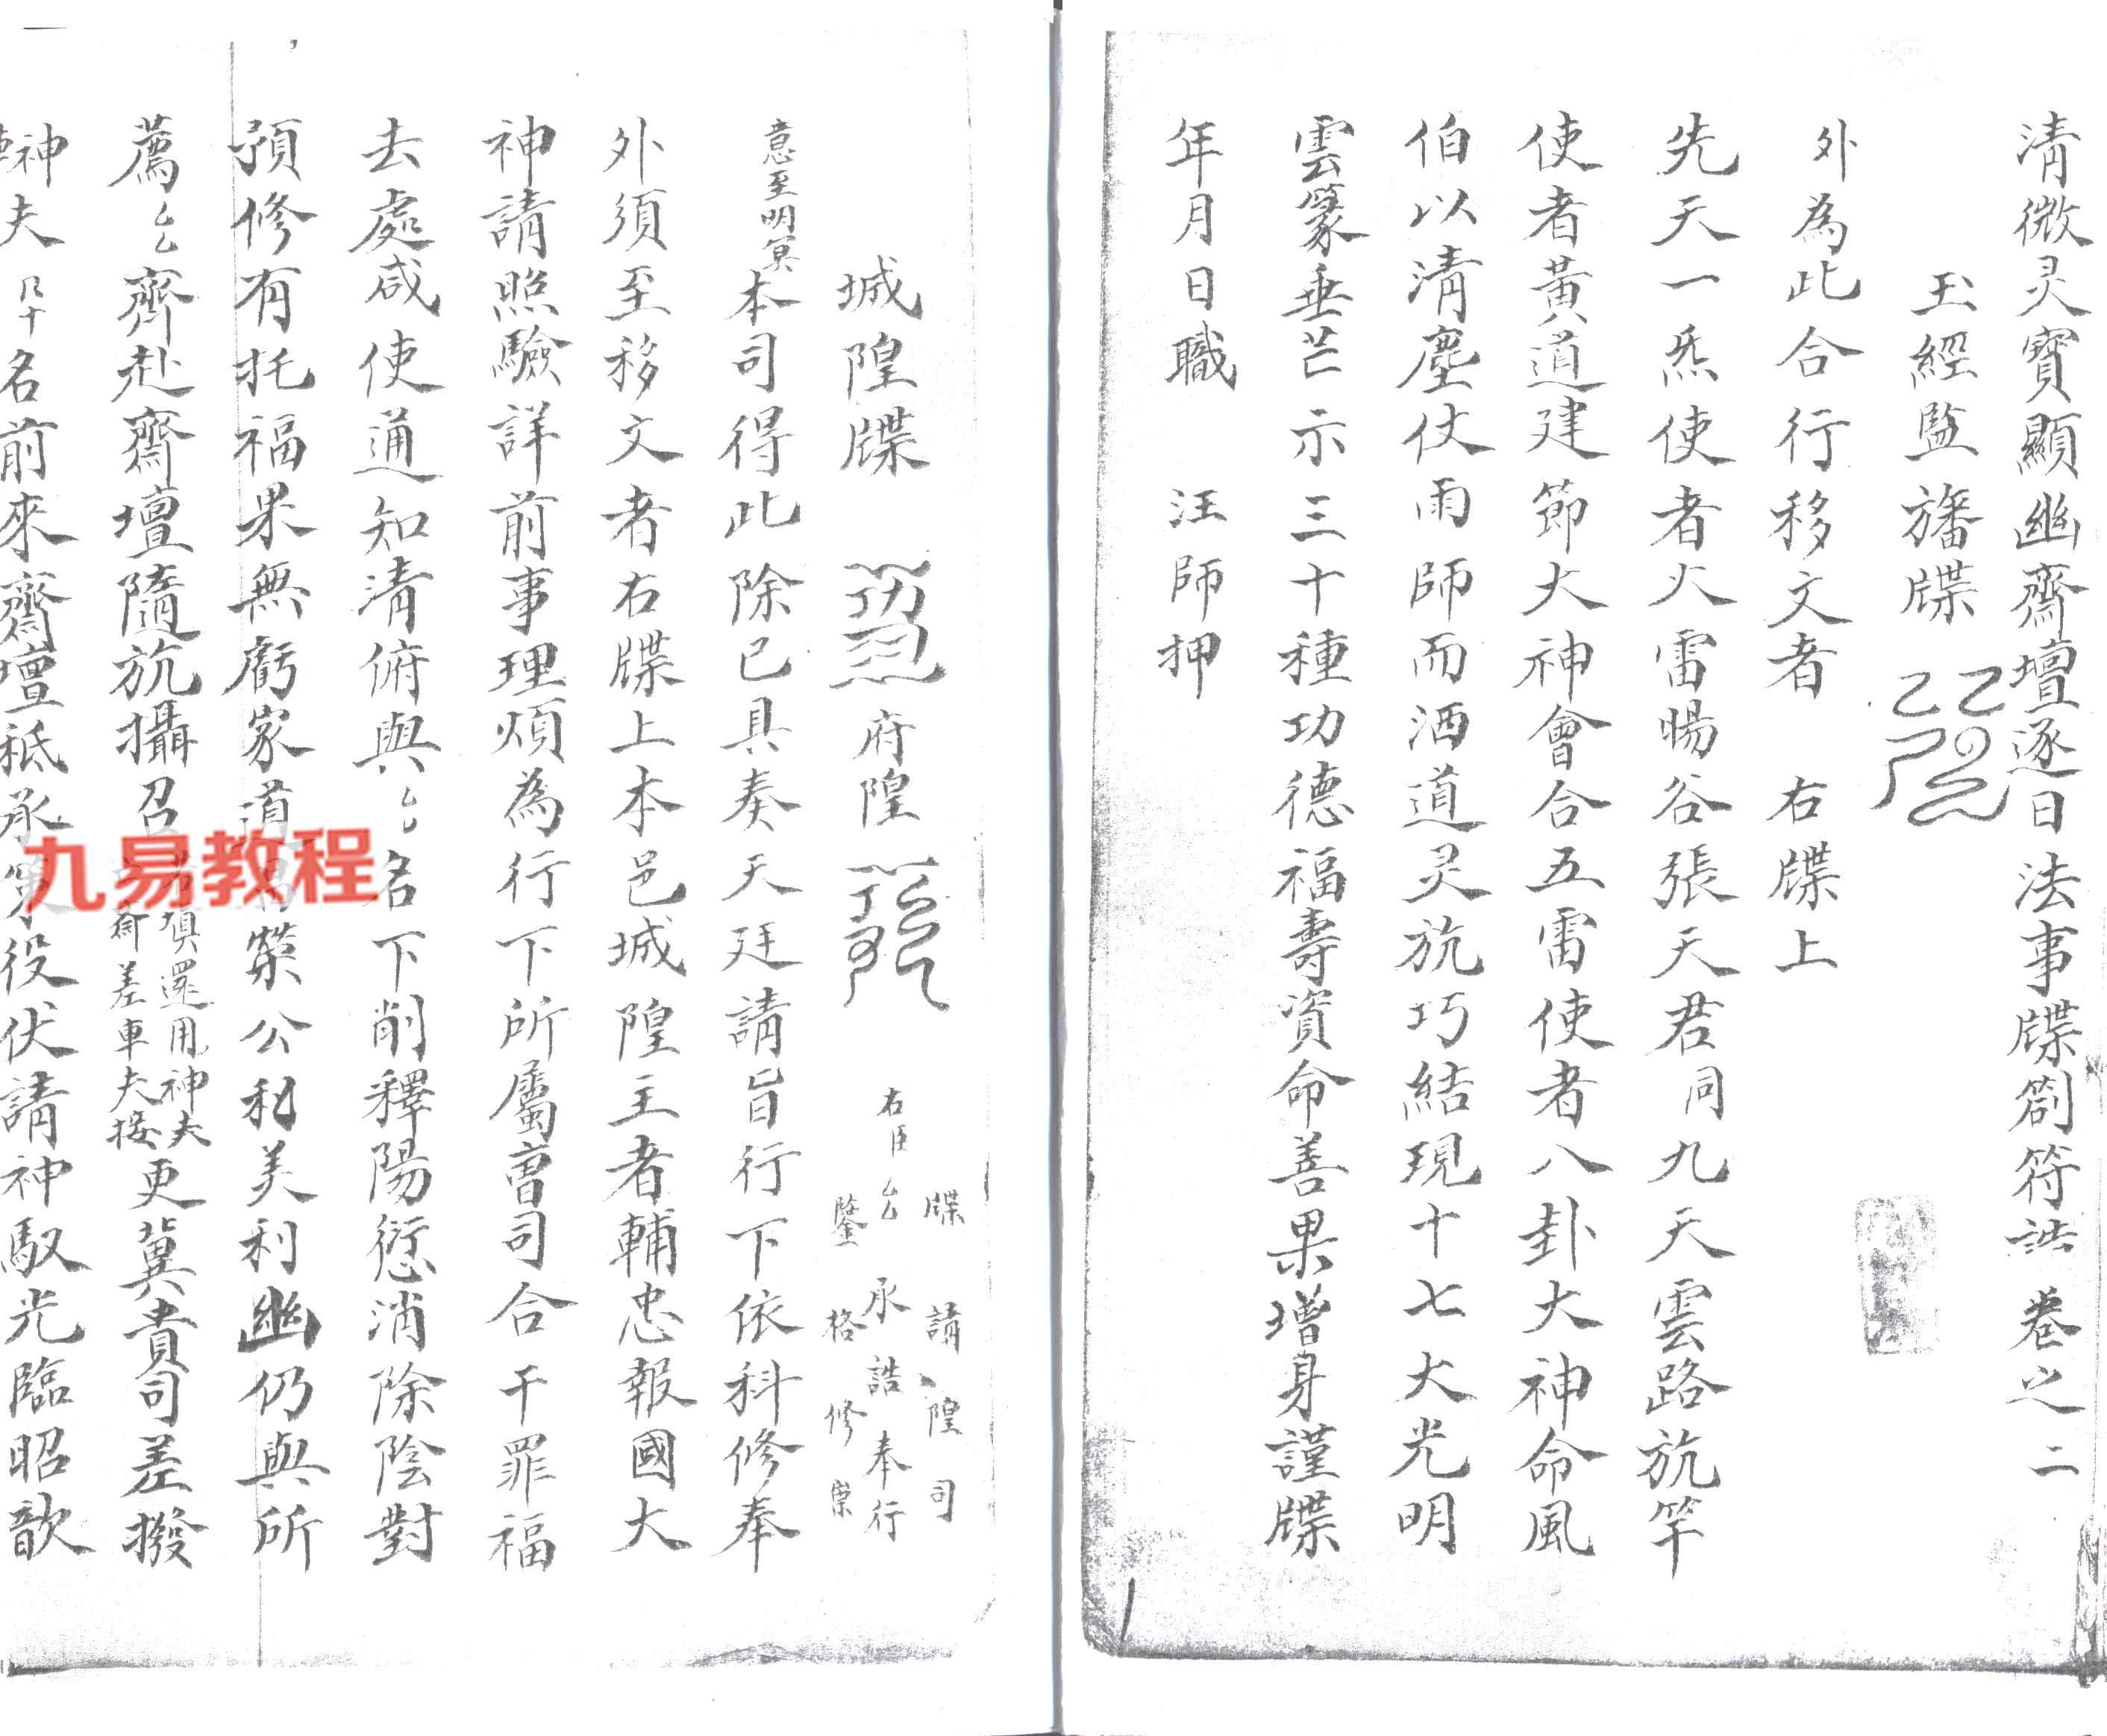 清微灵寳顯幽齋壇逐日法事牒劄符誥卷之二
玉經監旛牒
外為此合行移文者 右牒上
先天一炁使者火雷暘谷張天君同九天雲路斻竿
使者黃道建節大神會合五雷使者八卦大神命風
伯以清塵仗雨師而洒道灵斻巧結現十七大光明
雲篆垂芒示三十種功德福壽資命善果增身謹牒
年月日職 汪師押
城隍牒 府隍
牒 請 隍司
右臣厶 承誥奉行
鑒格 修崇
意至明冥本司得此除已具奏天廷請旨行下依科修奉
外須至移文者右牒上本邑城隍主者輔忠報國大
神請照驗詳前事理煩為行下所屬曹司合干罪福
去處咸使通知清俯與厶名下削釋陽愆消除陰對
預修有托福果無虧家道 公私美利幽仍與所
薦厶齊赴齋壇隨斻攝召 還用神夫 差車夫接更冀貴司差撥
神夫凡十名前來齋壇祗承 役伏請神馭光臨昭歆
九易教程